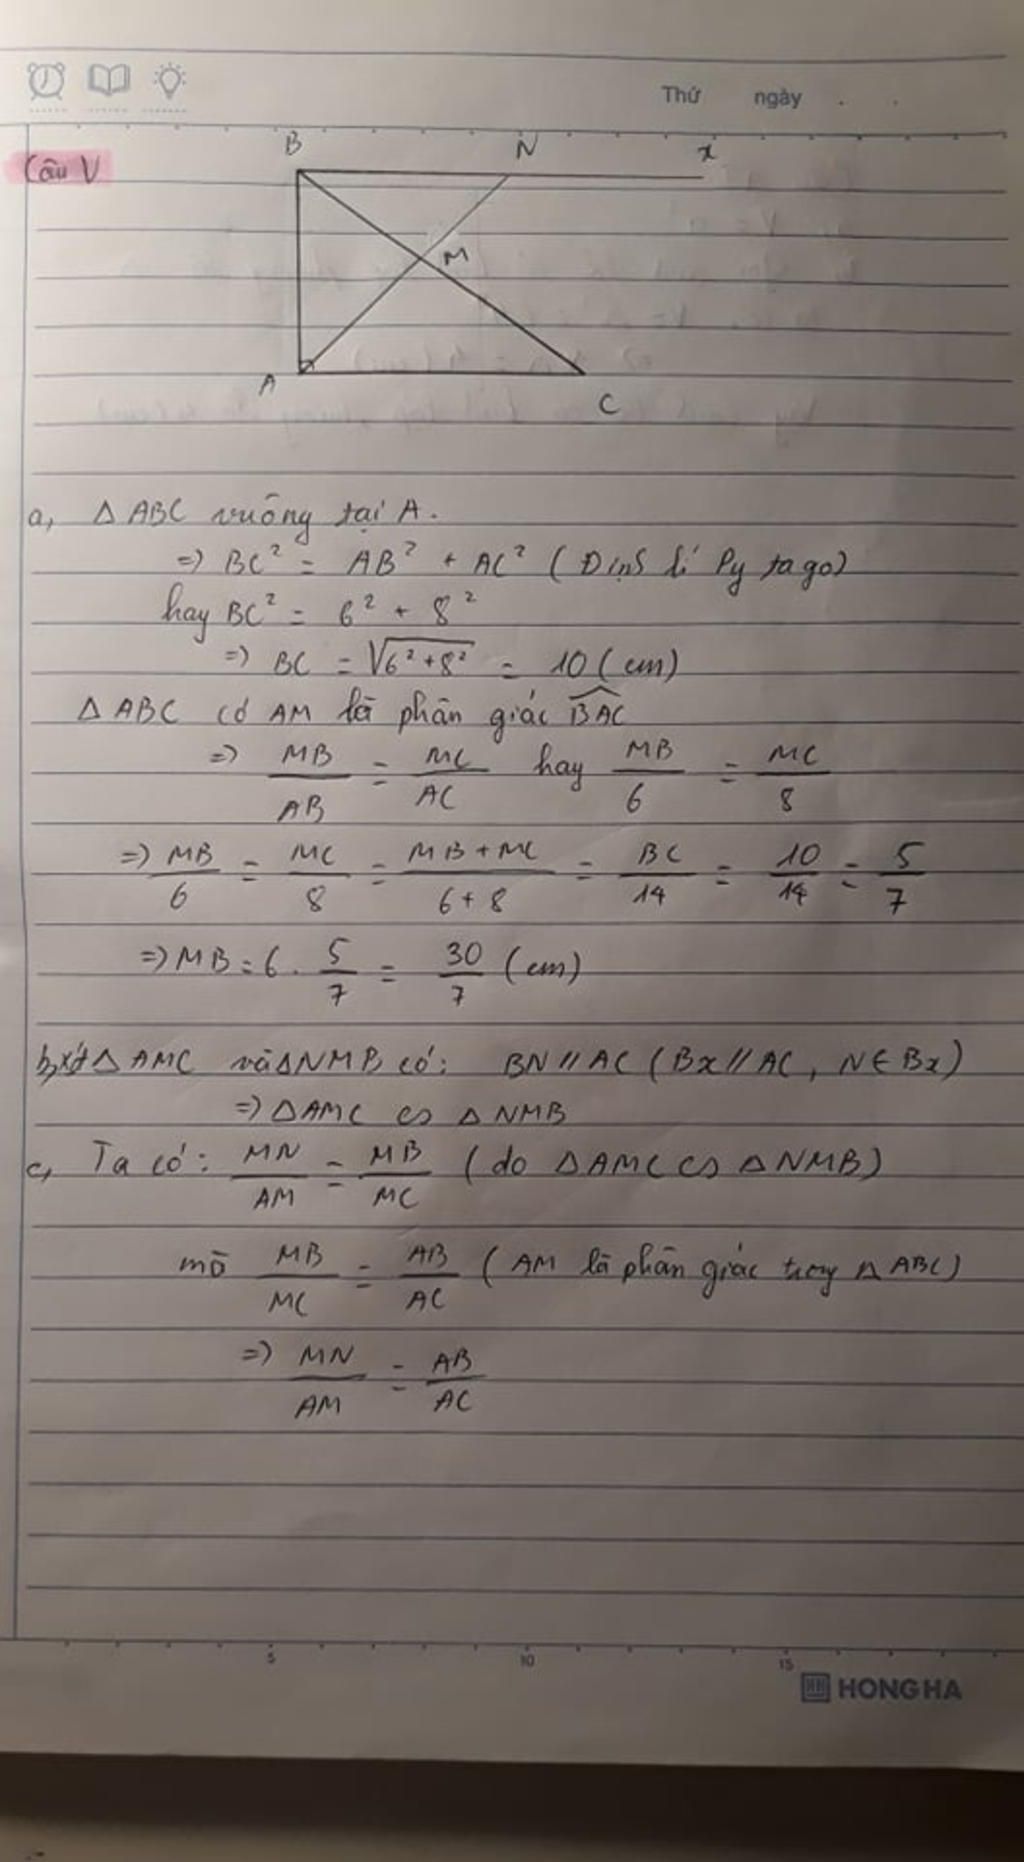 Thứ ngày . .
Câu V
B N x
M
A C
a, △ ABC vuông tại A.
=> BC² = AB² + AC² (Định lí Py ta go)
hay BC² = 6² + 8²
=> BC = √(6² + 8²) = 10 (cm)
△ ABC có AM là phân giác \widehat{BAC}
=> MB/AB = MC/AC hay MB/6 = MC/8
=> MB/6 = MC/8 = MB + MC/6 + 8 = BC/14 = 10/14 = 5/7
=> MB = 6 . 5/7 = 30/7 (cm)
b, xét △ AMC và △NMB có: BN // AC (Bx // AC, N ∈ Bx)
=> △AMC ∽ △ NMB
c, Ta có: MN/AM = MB/MC (do △AMC ∽ △ NMB)
mà MB/MC = AB/AC (AM là phân giác trong △ ABC)
=> MN/AM = AB/AC
5 10 15
HH HONG HA